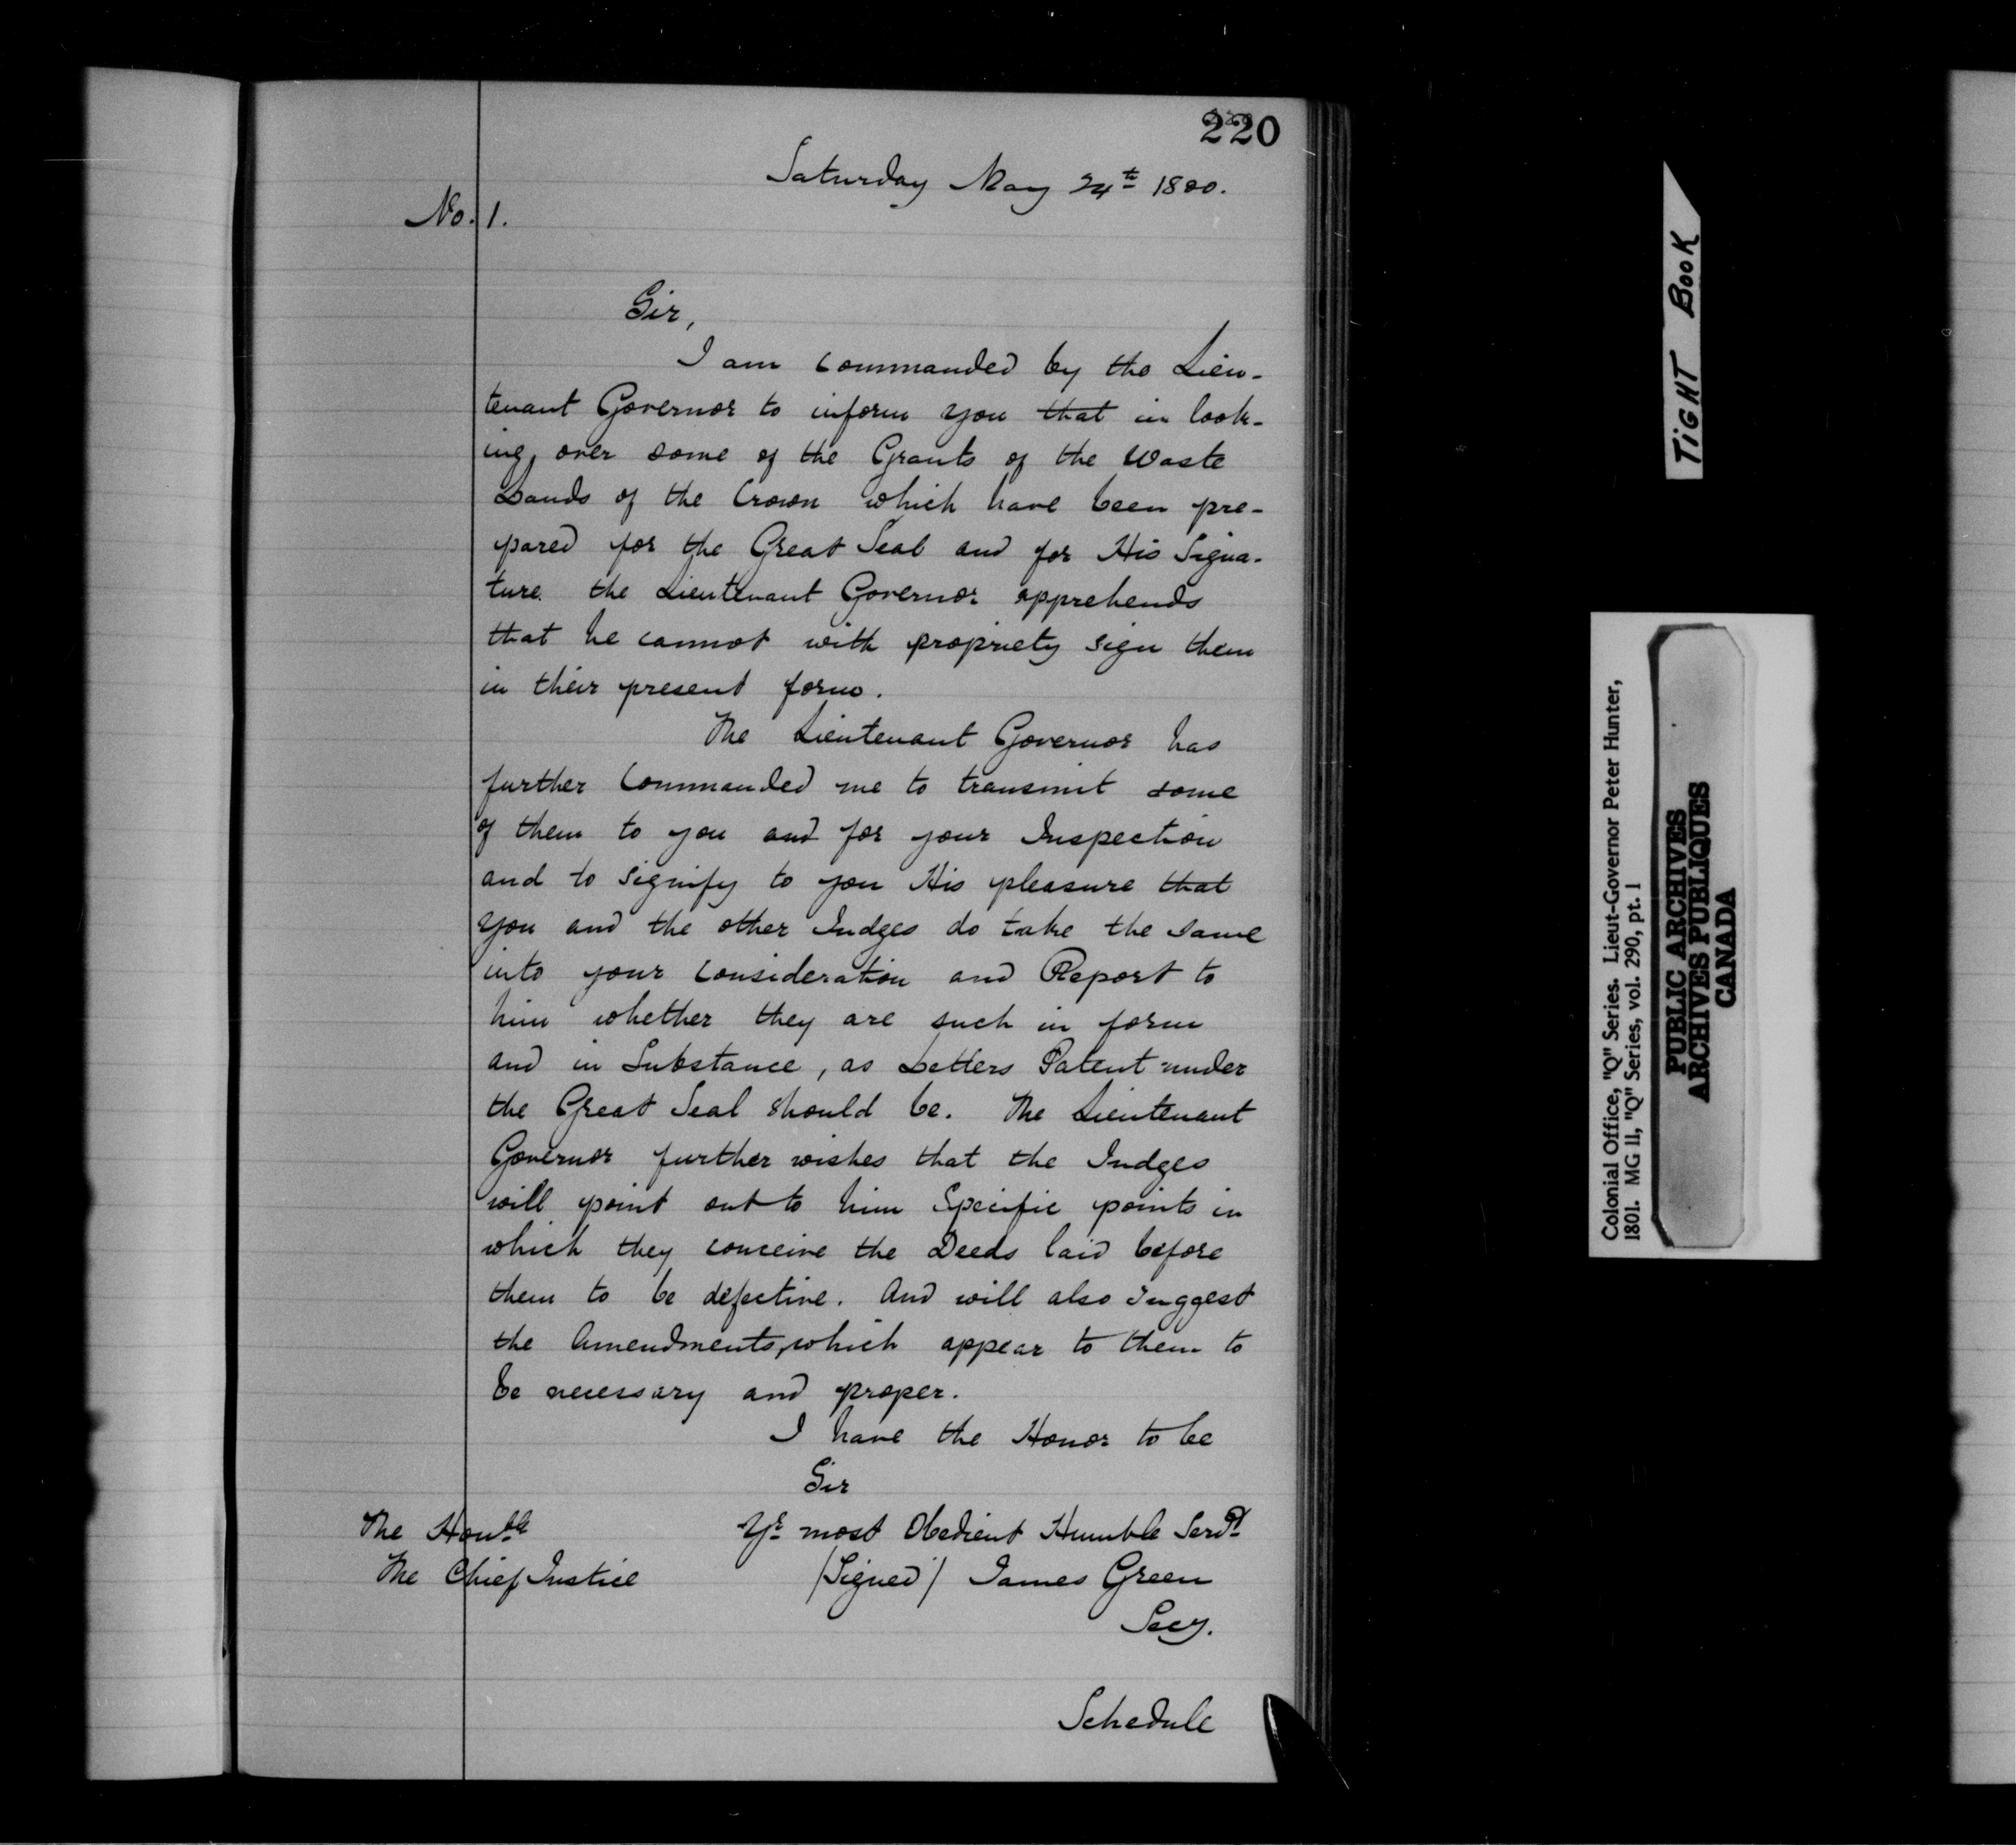 220
Saturday May 24th 1800.
No. 1.
Sir,
I am commanded by the Lieu-
tenant Governor to inform you that in look-
ing, over some of the Grants of the Waste
Lands of the Crown which have been pre-
pared for the Great Seal and for His Signa-
ture. the Lieutenant Governor apprehends
that he cannot with propriety sign them
in their present form.
The Lieutenant Governor has
further Commanded me to transmit some
of them to you and for your Inspection
and to signify to you His pleasure that
you and the other Judges do take the same
into your consideration and Report to
him whether they are such in form
and in Substance, as Letters Patent under
the Great Seal should be. The Lieutenant
Governor further wishes that the Judges
will point out to him Specific points in
which they conceive the Deeds laid before
them to be defective. And will also suggest
the Amendments, which appear to them to
be necessary and proper.
I have the Honor to be
Sir
Yr most Obedient Humble Servt
The Honble
The Chief Justice
/Signed/ James Green
Secy.
Schedule
TIGHT BOOK
Colonial Office, "Q" Series. Lieut-Governor Peter Hunter,
1801. MG 11, "Q" Series, vol. 290, pt. 1
PUBLIC ARCHIVES
ARCHIVES PUBLIQUES
CANADA